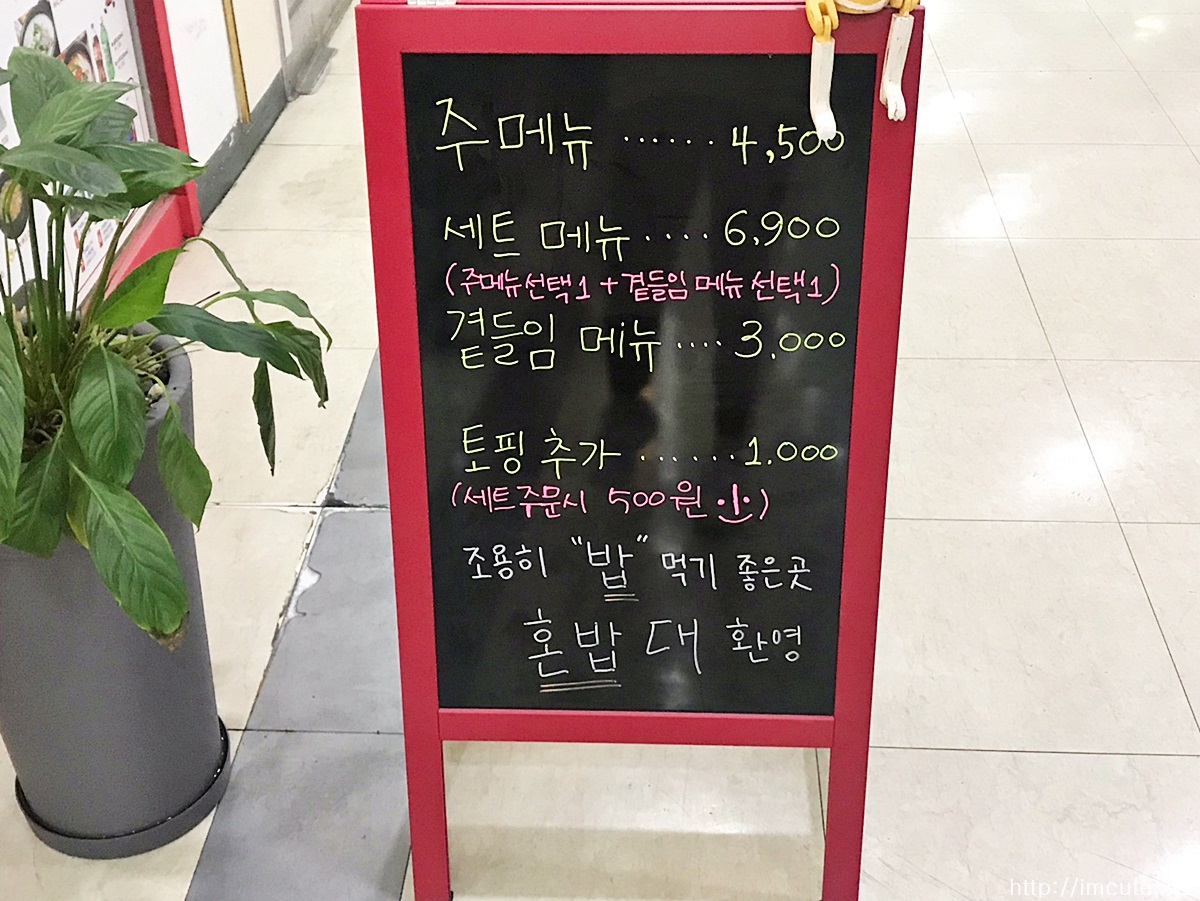 주메뉴 ...... 4,500
세트 메뉴 .... 6,900
(주메뉴선택1 + 곁들임 메뉴 선택1)
곁들임 메뉴 .... 3.000
토핑 추가 ....... 1.000
(세트주문시 500원)
조용히 "밥" 먹기 좋은곳
혼밥 대 환영